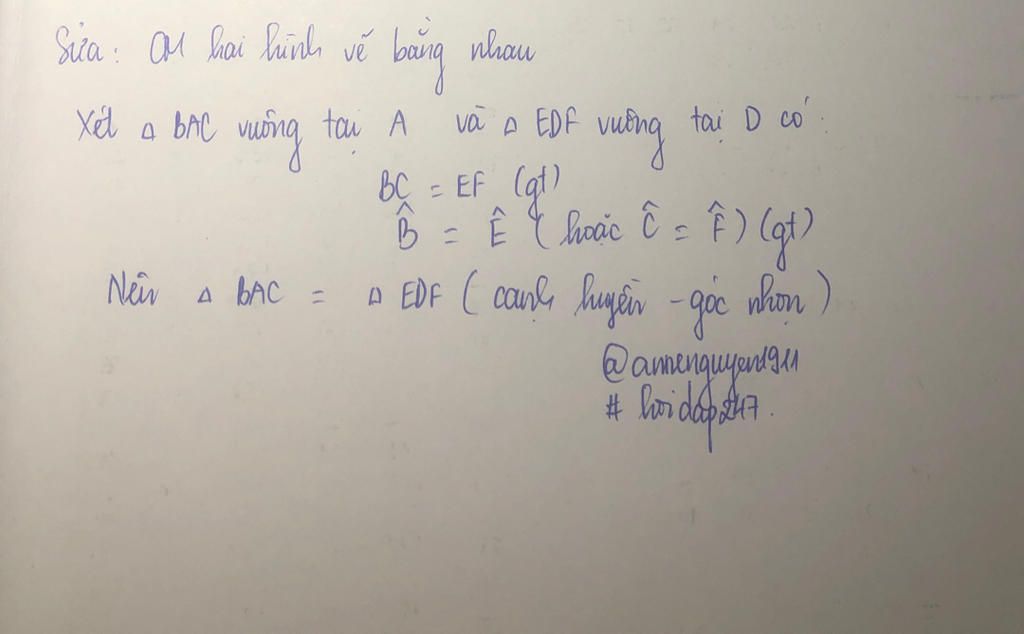 Sửa: CM hai hình vẽ bằng nhau
Xét Δ BAC vuông tại A và Δ EDF vuông tại D có:
BC = EF (gt)
B̂ = Ê (hoặc Ĉ = F̂) (gt)
Nên Δ BAC = Δ EDF (cạnh huyền - góc nhọn)
@annenguyen1911
# hoidap247.